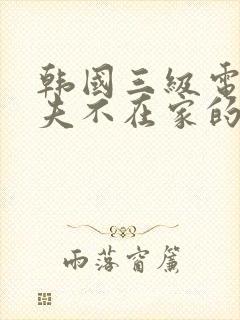 韩国三级電
夫不在家的
雨落窗簾